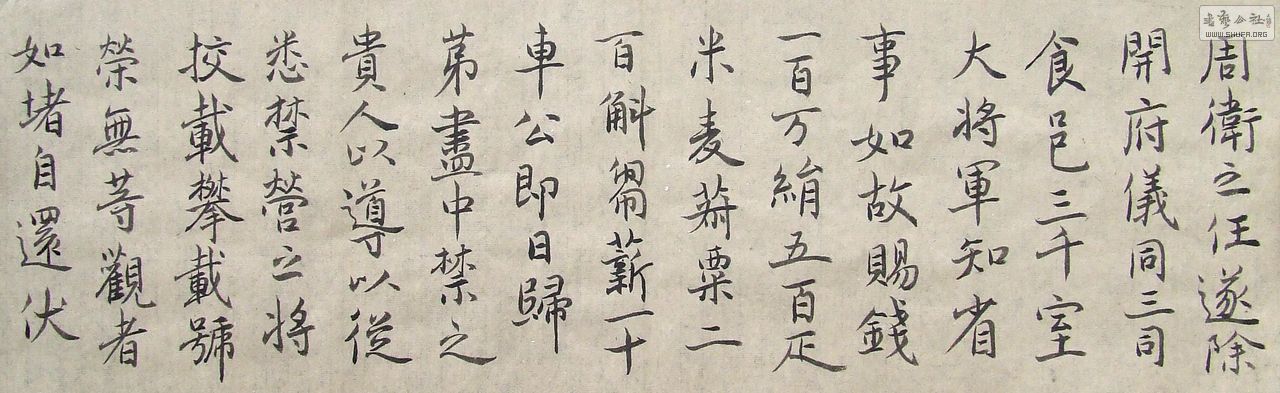 周衛之任遂除
開府儀同三司
食邑三千室
大將軍知省
事如故賜錢
一百万絹五百疋
米麦蒭粟二
百斛芻薪一十
車公即日歸
苐盡中禁之
貴人以導以從
悉禁營之將
挍載攀載號
榮無等觀者
如堵自還伏
書藝公社
WWW.SHUFA.ORG